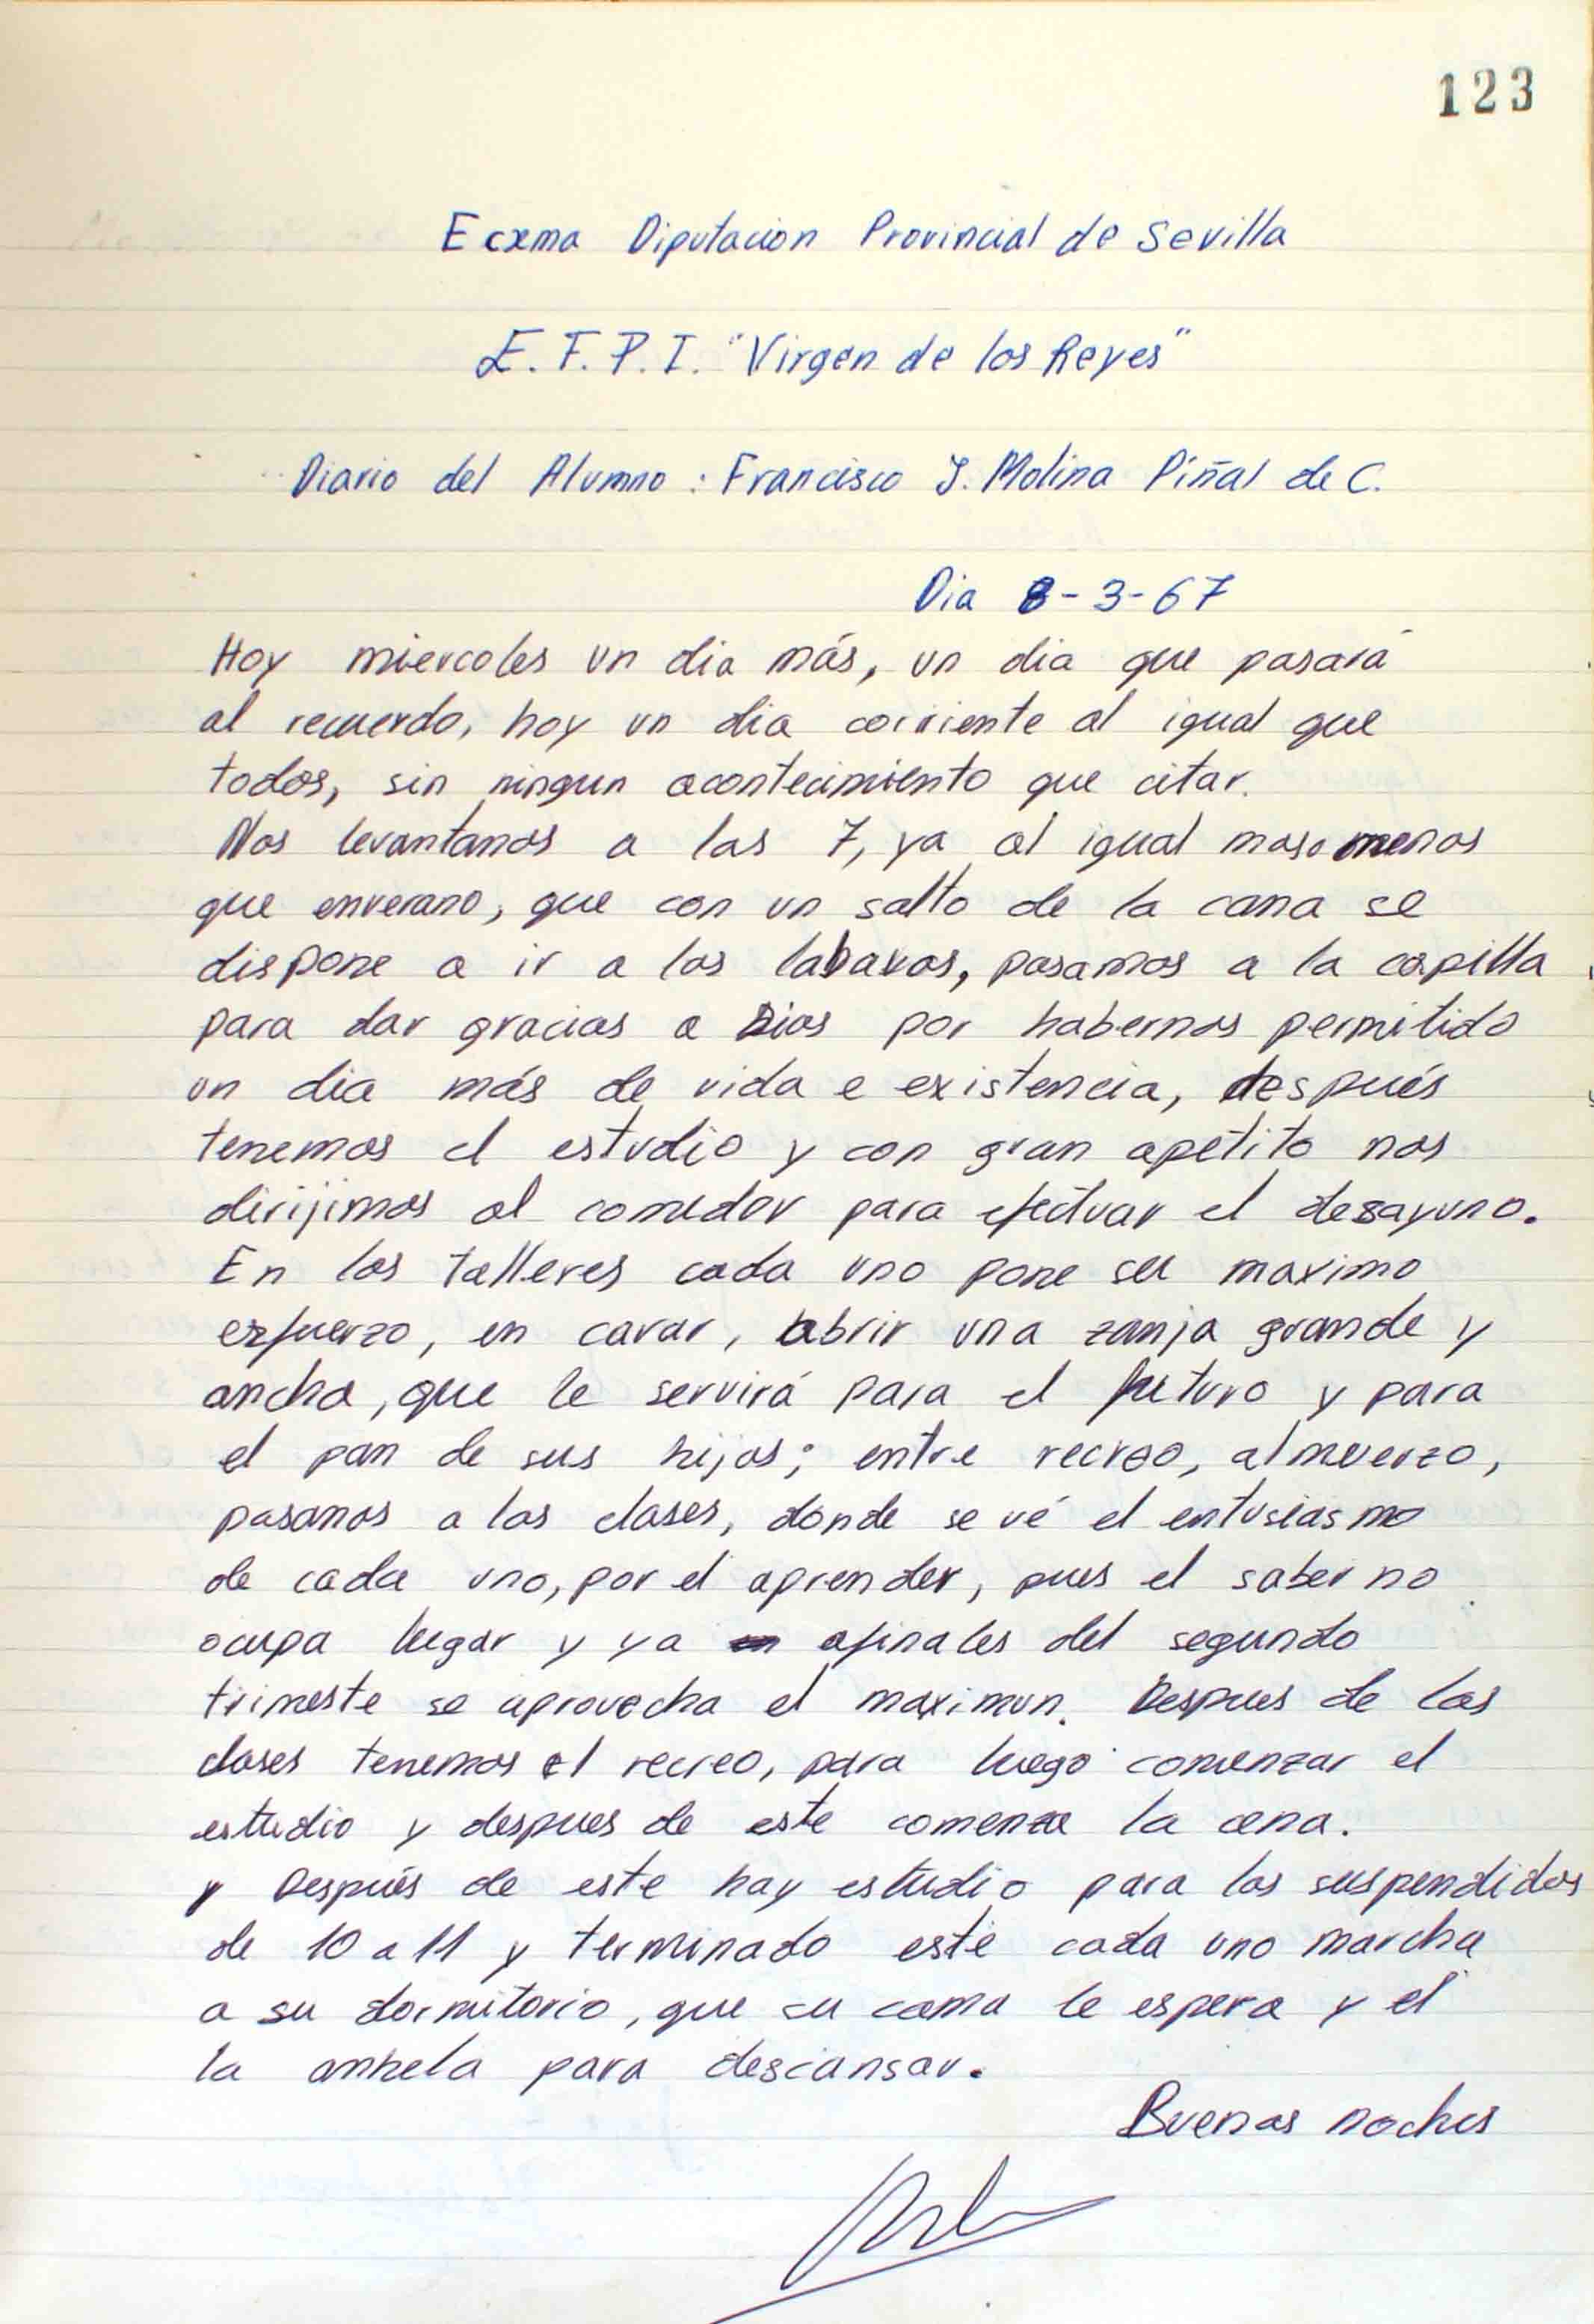 123
Ecxma Diputacion Provincial de Sevilla
E.F.P.I. "Virgen de los Reyes"
Diario del Alumno : Francisco J. Molina Piñal de C.
Dia 8-3-67
Hoy miercoles un dia más, un dia que pasará
al recuerdo, hoy un dia corriente al igual que
todos, sin ningun acontecimiento que citar.
Nos levantamos a las 7, ya al igual maso menos
que enverano, que con un salto de la cama se
dispone a ir a los labavos, pasamos a la capilla
para dar gracias a Dios por habernos permitido
un dia más de vida e existencia, después
tenemos el estudio y con gran apetito nos
dirijimos al comedor para efectuar el desayuno.
En los talleres cada uno pone su maximo
esfuerzo, en cavar, abrir una zanja grande y
ancha, que le servirá para el futuro y para
el pan de sus hijos; entre recreo, almuerzo,
pasamos a las clases, donde se vé el entusiasmo
de cada uno, por el aprender, pues el saber no
ocupa lugar y ya afinales del segundo
trimeste se aprovecha el maximun. Despues de las
clases tenemos el recreo, para luego comenzar el
estudio y despues de este comenza la cena.
y Después de este hay estudio para los suspendidos
de 10 a 11 y terminado este cada uno marcha
a su dormitorio, que su cama le espera y el
la anhela para descansar.
Buenas noches